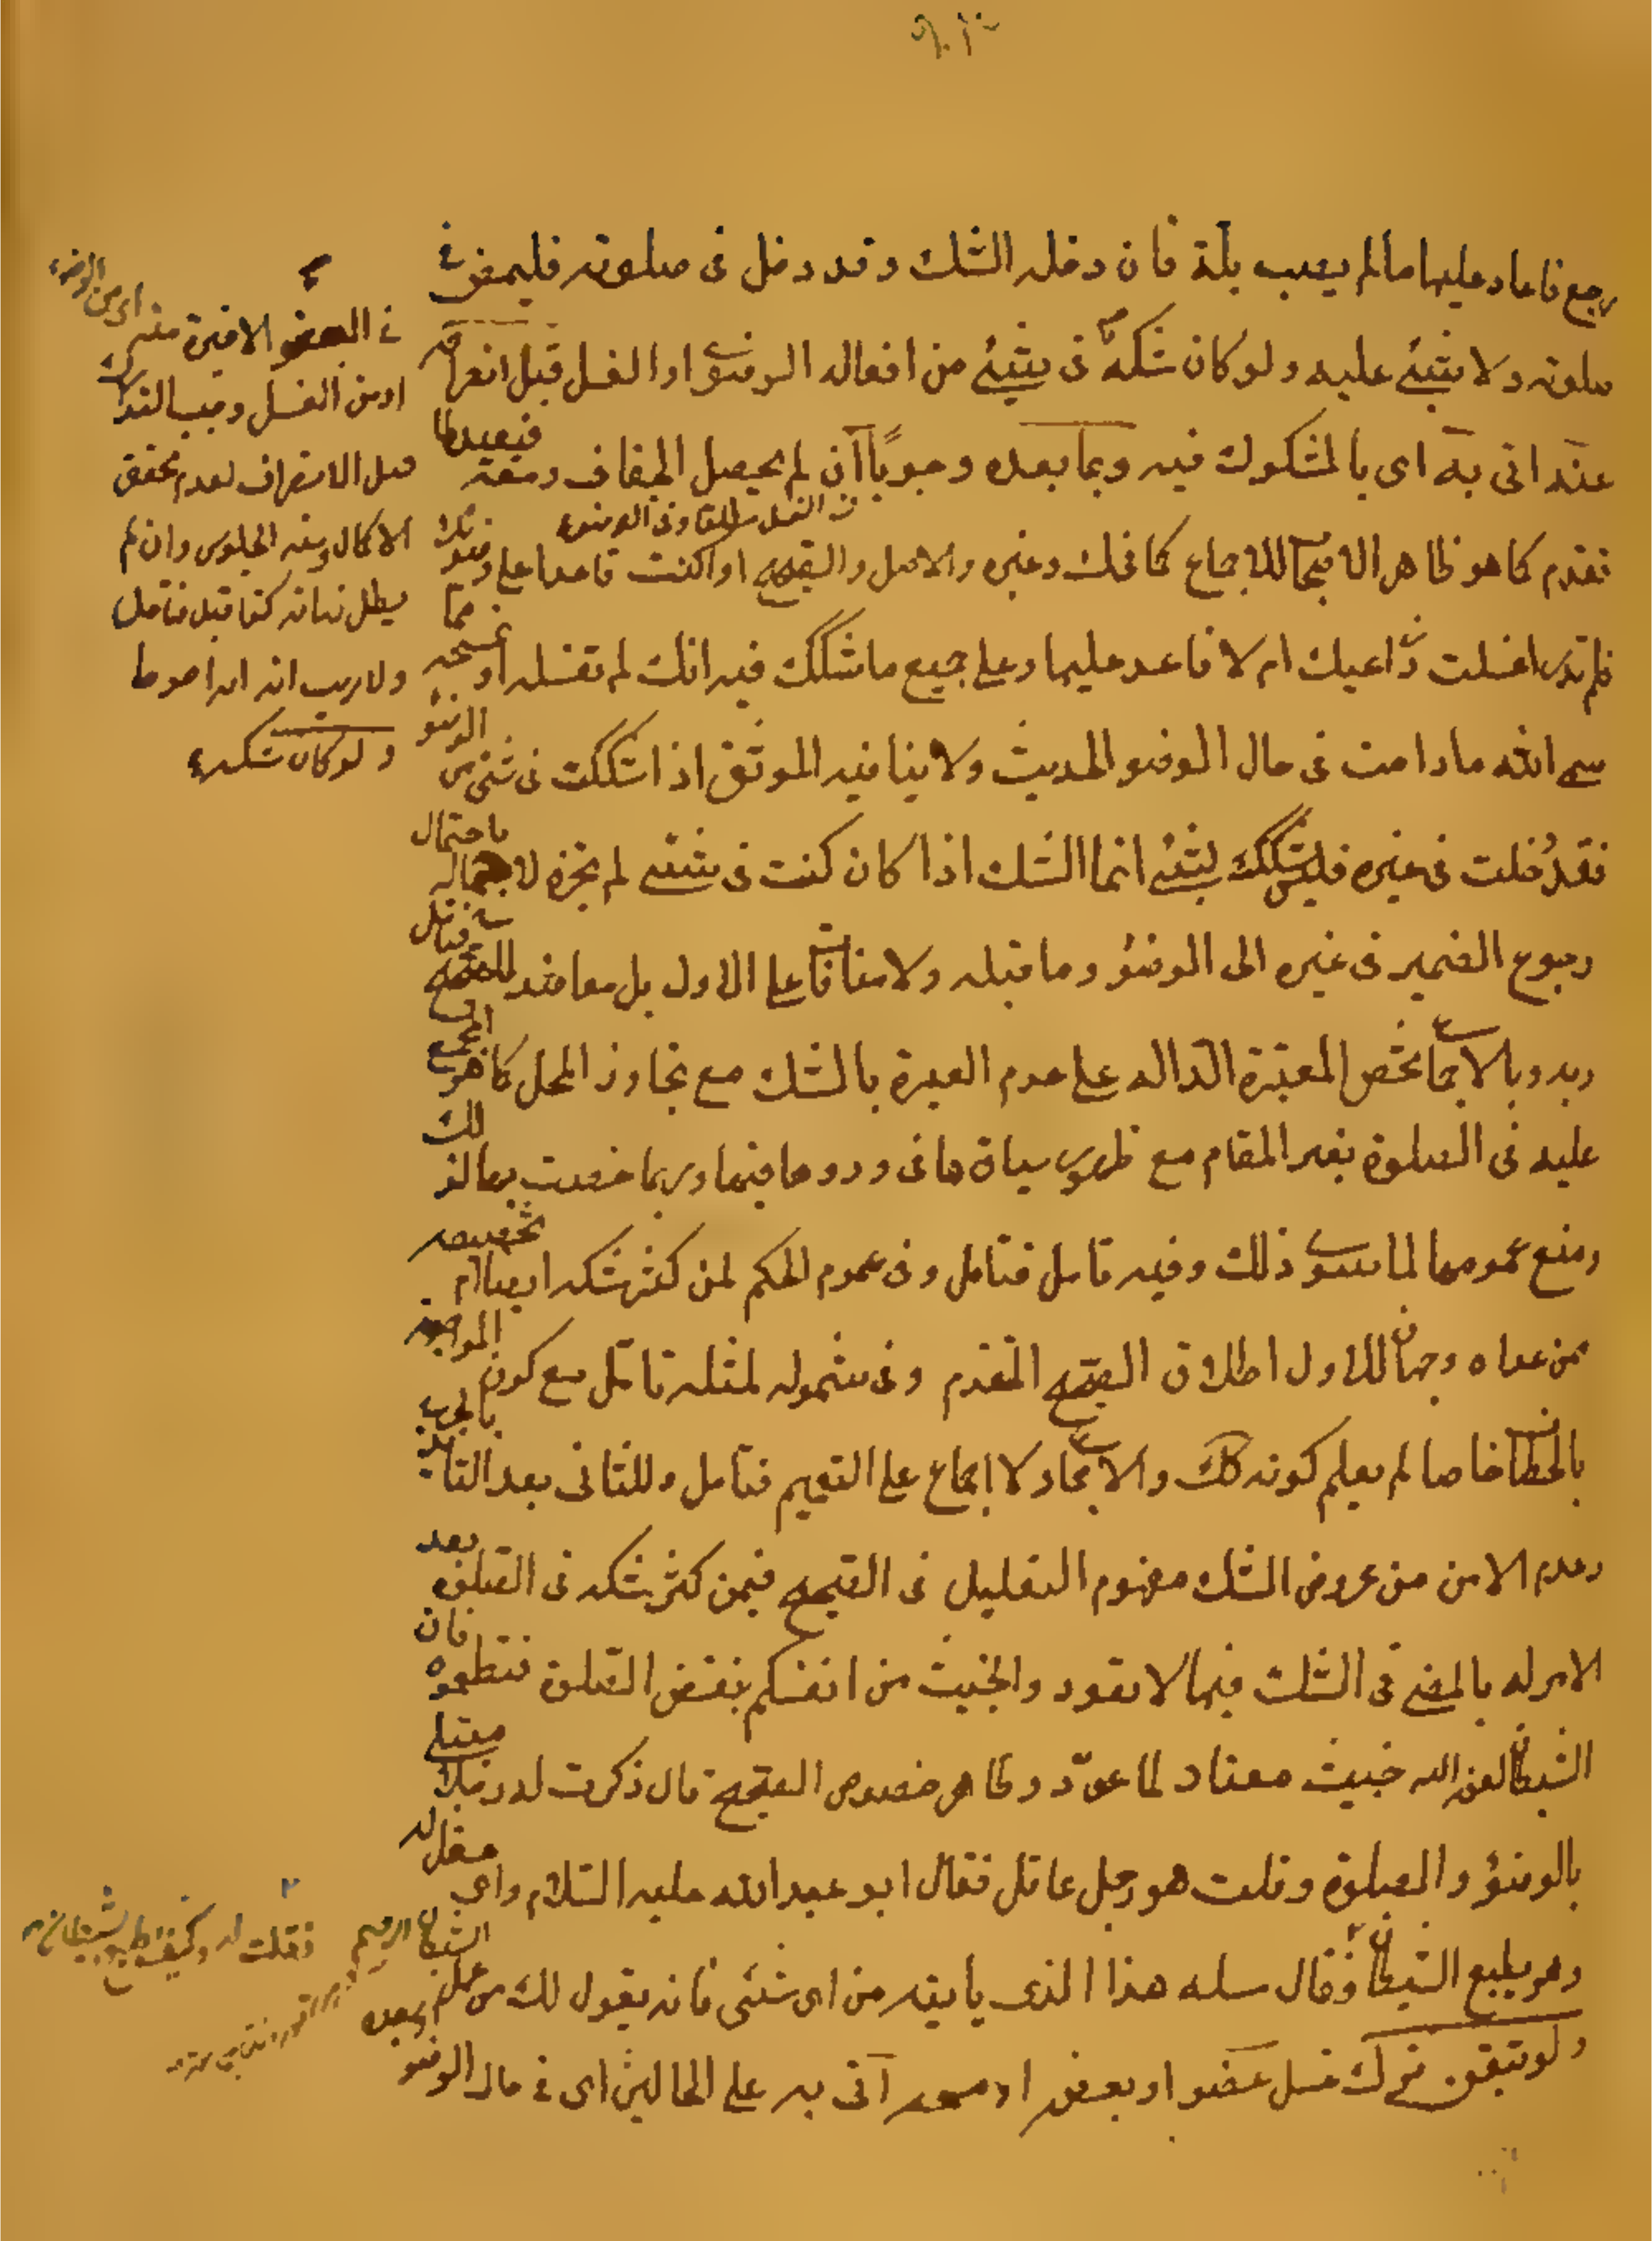 رجع فاعاد عليها ما لم يصب بلة فان دخله الشك و قد دخل فى صلوته فليمض فى
صلوته و لا شيئ عليه و لو كان شكه فى شيئ من افعاله الوضوء او الغسل قبل انصرافه
عنه اتى به اى بالمشكوك فيه و بما بعده وجوبًا ان لم يحصل الجفاف
تقدم كما هو ظاهر الاصحاب للاجماع كما حكى و غيره و الاصل و الصحيح اذا كنت قاعدا على وضوئك
فلم تدر اغسلت ذراعيك ام لا فاعد عليها و على جميع ما شككت فيه انك لم تغسله او تمسحه مما
سمى الله ما دامت فى حال الوضوء الحديث و لا ينافيه الموثق اذا شككت فى شئ من الوضوء
فقد دخلت فى غيره فليس شكك بشئ انما الشك اذا كان كنت فى شئ لم تجزه لاجماله باحتمال
رجوع الضمير فى غيره الى الوضوء و ما قبله و لا منافاة على الاول بل معاضد للصحيح
و به و بالاجماع نخص المعتبرة الداله على عدم العبرة بالشك مع تجاوز المحل كما هو المجمع
عليه فى الصلوة بغير المقام مع ظهور سياقها فى ورودها فيها و ربما خصت بها لذلك
و منع عمومها لما سوى ذلك و فيه تامل فتامل و فى عموم الحكم لمن كثر شكه ايضا ام تخصيصه
بمن عداه وجهان للاول اطلاق الصحيح المتقدم و فى شموله لمثله تامل مع كون المواجه
بالخطاب خاصا لم يعلم كونه كك و الايجاب و لا اجماع على التعميم فتامل و للثانى بعد التايد
و عدم الامن من عروض الشك مفهوم التعليل فى الصحيح فيمن كثر شكه فى الصلوة بعد
الامر له بالمضى فى الشك فيما لا تعود و الخبيث من انفسكم بنقض الصلوة فتطمعوه فان
الشيطان لعنه الله خبيث معتاد لما عود و ظاهر خصوص الصحيح قال ذكرت له رجلا مبتلى
بالوضوء و الصلوة و قلت هو رجل عاقل فقال ابو عبد الله عليه السلام و اى عقل له
و هو يطيع الشيطان فقال سله هذا الذى يأتيه من اى شئى فانه يقول لك من عمل الشيطان الرجيم
و لو تيقن ترك غسل عضو او بعضه او مسحه اتى به على الحالين اى فى حال الوضوء و بعده
فى العضو الاخيرة منه اى من الوضوء
او من الغسل وجب التدارك
قبل الانصراف لعدم تحقق
الاكمال و منه الجلوس و ان لم
يطل زمانه كذا قيل فتامل
و لا ريب انه احوط
و لو كان شكه
فقلت له و كيف يطيع الشيطان